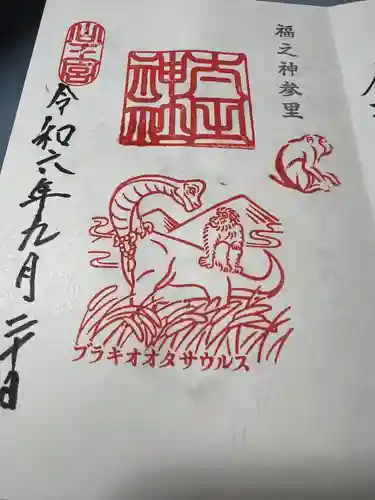 福之神参里
神社
令和六年九月二十日
ブラキオオタサウルス